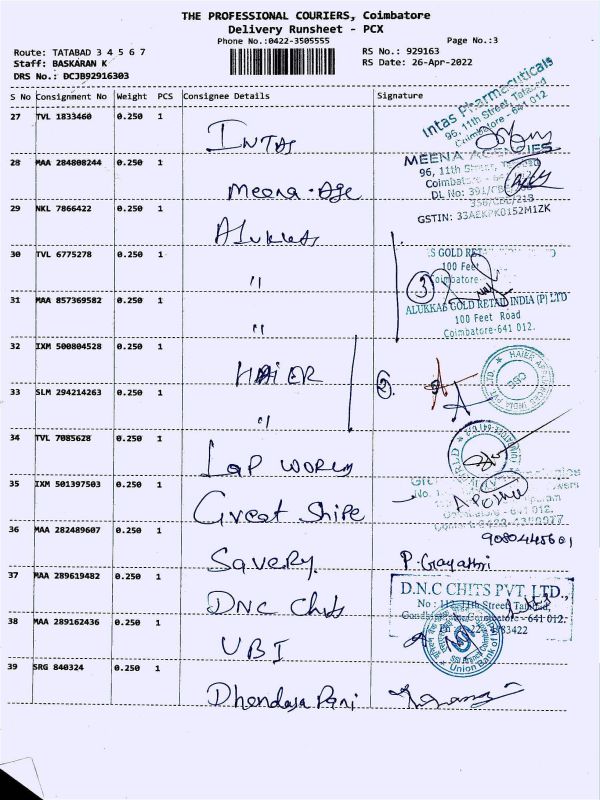 THE PROFESSIONAL COURIERS, Coimbatore
Delivery Runsheet - PCX
Phone No.:0422-3505555
Page No.:3
Route: TATABAD 3 4 5 6 7
RS No.: 929163
Staff: BASKARAN K
RS Date: 26-Apr-2022
DRS No.: DCJB92916303
S No Consignment No Weight PCS Consignee Details Signature
27 TVL 1833460 0.250 1 INTAS
Intas Pharmaceuticals
96, 11th Street, Tatabad
Coimbatore - 641 012
28 MAA 284808244 0.250 1 Meena. Age
MEENA AGENCIES
96, 11th Street,
Coimbatore
DL No: 391/CBE/
GSTIN: 33AEKPK0152M1ZK
29 NKL 7866422 0.250 1 Alukkas
30 TVL 6775278 0.250 1 "
GOLD RET
100 Feet
Coimbatore
3
31 MAA 857369582 0.250 1 "
ALUKKAS GOLD RETAIL INDIA (P) LTD
100 Feet Road
Coimbatore-641 012.
32 IXM 500804528 0.250 1 HAIER
2.
HAIER APPLIANCES INDIA PVT. LTD.
CBE
33 SLM 294214263 0.250 1 "
34 TVL 7085628 0.250 1 Lap world
35 IXM 501397503 0.250 1 Great Shipe
9080445601
36 MAA 282489607 0.250 1 Savery.
P. Gayathri
37 MAA 289619482 0.250 1 DNC Chits
D.N.C CHITS PVT. LTD.,
No : 112, 11th Street, Tatabad,
Coimbatore - 641 012.
38 MAA 289162436 0.250 1 UBI
Union Bank of
39 SRG 840324 0.250 1 Dhendasa Pani